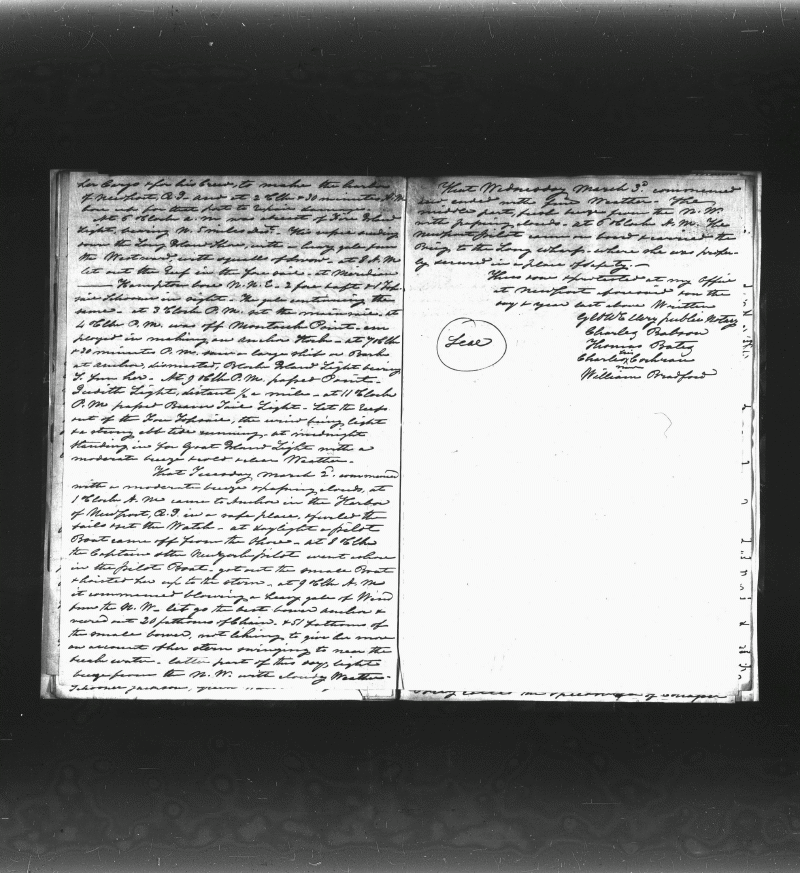 her Cargo & for his Crew, to make the harbor
of Newport, R.I. and at 2 Clk & 30 minutes A.M.
bore up for that port to Expire
At 6 Clock A.M. was abreast of Fire Island
Light, bearing N. 5 miles dist.
down the Long Island Shore, with a heavy gale from
the Westward with squalls of snow. at 8 A.M.
let out the Reef in the fore sail. at Meridian
Hampton bore N.N.E. 2 & 1 Top-
sail Schooner in sight. The gale continuing the
same. at 3 Clock P.M. set the main sail. at
4 Clk P.M. was off Montauck Point. em-
ployed in making an anchor Stock. at 7 Clk
& 30 minutes P.M. saw a large ship or Bark
at anchor, dismasted, Block Island Light bearing
S. from her. At 9 Clk P.M. passed Point
Judith Light, distant a mile. at 11 Clock
P.M. passed Beaver Tail Light. Let the Reefs
out of the Fore Topsail, the wind being light
& a strong ebb tide running. at midnight
standing in for Goat Island Light with a
moderate breeze & cold clear Weather.
That Tuesday, March 2d. commenced
with a moderate breeze & passing clouds, at
1 Clock A.M. came to Anchor in the Harbor
of Newport, R.I. in a safe place, & furled the
sails & set the Watch. at daylight a pilot
Boat came off from the Shore. at 8 Clk
the Captain & the New York pilot went ashore
in the pilot Boat. got out the small Boat
& hoisted her up to the stern. at 9 Clk A.M.
it commenced blowing a heavy gale of Wind
from the N.W. let go the best bower anchor &
veered out 20 fathoms of Chain. & 51 fathoms of
the small bower, not liking to give her more
on account of her stern swinging to near the
break water. latter part of this day, light
breeze from the N.W. with cloudy Weather.
Schooner Jackson,
That Wednesday March 3d. commenced
and ended with fine Weather. The
middle part, fresh breeze from the N.W.
with passing clouds. at 6 Clock A.M. the
Newport pilot on board & warped the
Brig to the Long wharf, where she was proper-
ly secured in a place of safety.
Thus done & protested at my Office
at Newport aforesaid on the
day & year last above Written
Geo. W. Ellery public Notary
Charles Babson
Thomas Bates
his
Charles Cochran
mark
William Bradford
Seal